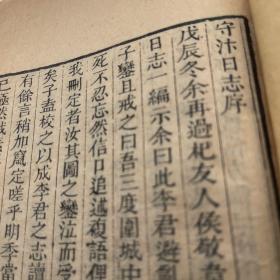 守汴日志序
戊辰冬余再過杞友人侯敬
日志一編示余曰此李君避
子鑾且戒之曰吾三度圍城中
死不忍忘然信口追述複語俚
我刪定者汝其圖之鑾泣而受
矣子盍校之以成李君之志讀
有餘言稍加竄定嗟乎明季當